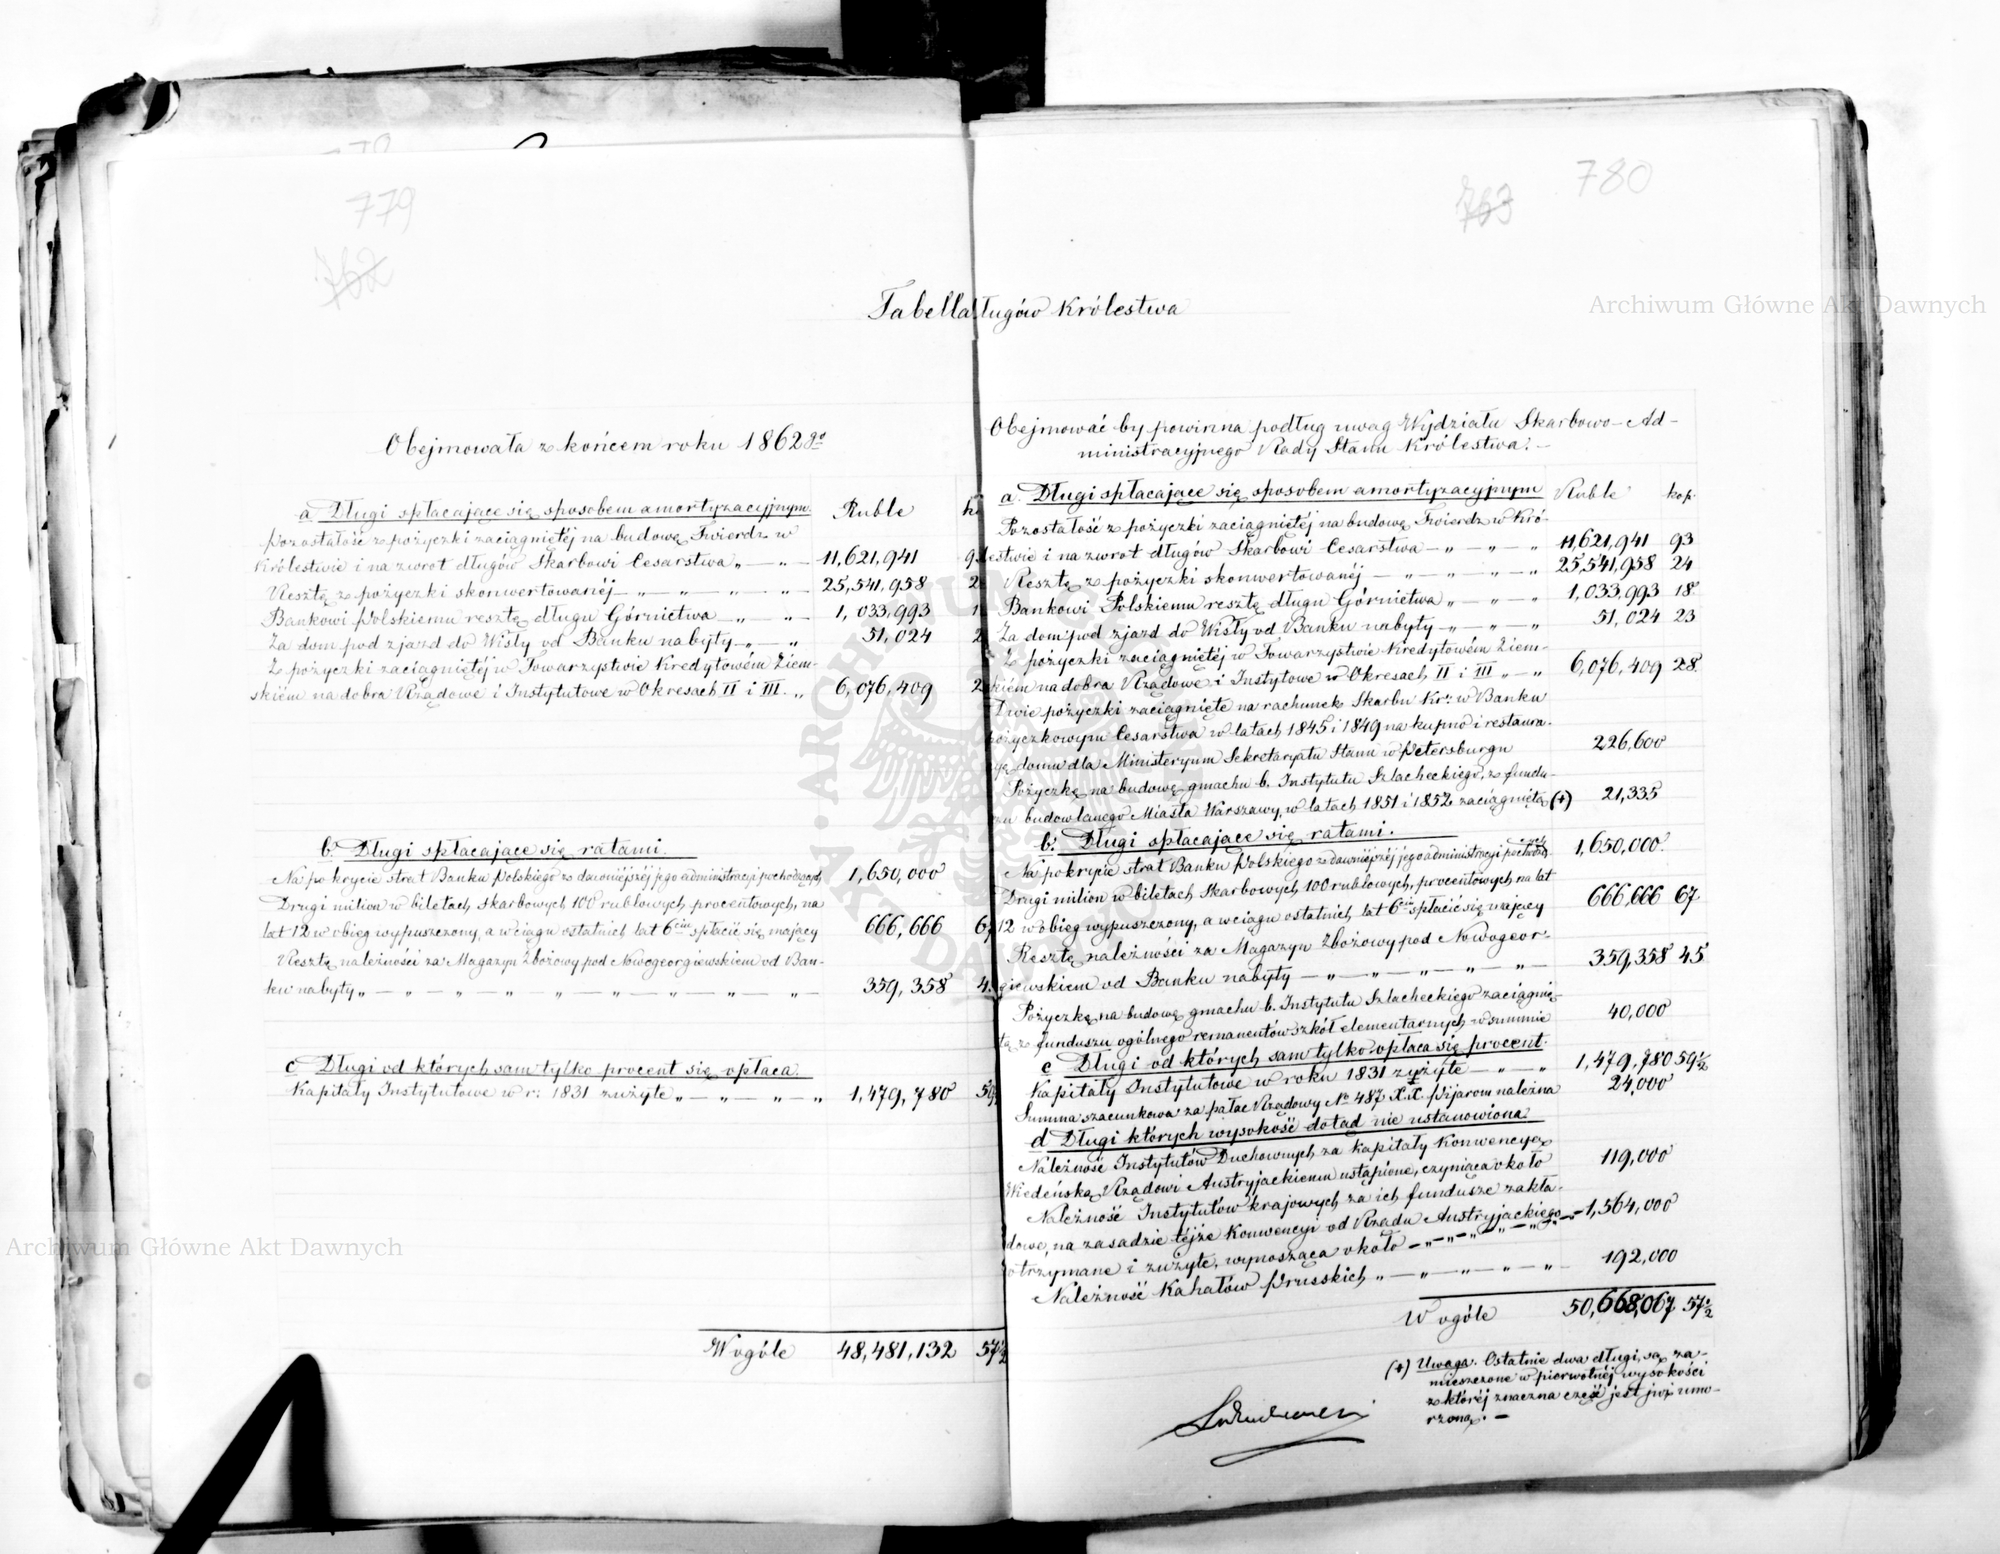 779
762
780
763
Tabella długów Królestwa
Obejmowała z końcem roku 1862go
a Długi spłacające się sposobem amortyzacyjnym. Ruble
Pozostałość z pożyczki zaciągniętéj na budowę Twierdz w
Królestwie i na zwrot długów Skarbowi Cesarstwa „ — „ — 11,621,941 9
Resztę z pożyczki skonwertowanéj — „ — „ „ „ — 25,541,958 2
Bankowi Polskiemu resztę długu Górnictwa — „ — „ — 1,033,993 1
Za dom pod zjazd do Wisły od Banku nabyty — „ — „ 51,024 2
Z pożyczki zaciągniętéj w Towarzystwie Kredytowém Ziem-
skiém na dobra Rządowe i Instytutowe w Okresach II i III. „ 6,076,409 2
b. Długi spłacające się ratami.
Na pokrycie strat Banku Polskiego z dawniejszéj jego administracyi pochodzących 1,650,000
Drugi milion w biletach Skarbowych 100 rublowych, procentowych, na
lat 12 w obieg wypuszczony, a w ciągu ostatnich lat 6ciu spłacić się mający 666,666 6
Resztę należności za Magazyn Zbożowy pod Nowogeorgiewskiem od Ban-
ku nabyty „ — „ — „ — „ — „ — „ — „ — „ — „ 359,358 4
c Długi od których sam tylko procent się opłaca.
Kapitały Instytutowe w r: 1831 zużyte „ — „ — „ — „ 1,479,780 59
W ogóle 48,481,132 57½
Obejmować by powinna podług uwag Wydziału Skarbowo-Ad-
ministracyjnego Rady Stanu Królestwa: —
a. Długi spłacające się sposobem amortyzacyjnym Ruble kop.
Pozostałość z pożyczki zaciągniętéj na budowę Twierdz w Kró-
lestwie i na zwrot długów Skarbowi Cesarstwa — „ — „ — „ 11,621,941 93
Resztę z pożyczki skonwertowanéj — „ — „ — „ — „ 25,541,958 24
Bankowi Polskiemu resztę długu Górnictwa „ — „ — „ 1,033,993 18
Za dom pod zjazd do Wisły od Banku nabyty — „ — „ — „ 51,024 23
Z pożyczki zaciągniętéj w Towarzystwie Kredytowém Ziem-
skiém na dobra Rządowe i Instytowe w Okresach II i III „ — „ 6,076,409 28.
Dwie pożyczki zaciągnięte na rachunek Skarbu Kr: w Banku
pożyczkowym Cesarstwa w latach 1845 i 1849 na kupno i restaura-
cyę domu dla Ministeryum Sekretaryatu Stanu w Petersburgu 226,600
Pożyczkę na budowę gmachu b. Instytutu Szlacheckiego, z fundu-
szu budowlanego Miasta Warszawy, w latach 1851 i 1852 zaciągniętą (+) 21,335
b. Długi spłacające się ratami.
Na pokrycie strat Banku Polskiego z dawniejszéj jego administracyi pochodzących 1,650,000.
Drugi milion w biletach Skarbowych 100 rublowych, procentowych na lat
12 w obieg wypuszczony, a w ciągu ostatnich lat 6ciu spłacić się mający 666,666 67
Resztę należności za Magazyn Zbożowy pod Nowogeor-
giewskiem od Banku nabyty — „ — „ — „ — „ — „ 359,358 45
Pożyczkę na budowę gmachu b. Instytutu Szlacheckiego zaciągnię-
tą z funduszu ogólnego remanentów szkół elementarnych w summie 40,000
c Długi od których sam tylko opłaca się procent.
Kapitały Instytutowe w roku 1831 zużyte — „ — „ 1,479,780 59½
Summa szacunkowa za pałac Rządowy No 487 X.X. Pijarom należna 24,000
d Długi których wysokość dotąd nie ustanowiona
Należność Instytutów Duchownych za Kapitały Konwencyą
Wiedeńską Rządowi Austryjackiemu ustąpione, czyniąca około 119,000
Należność Instytutów krajowych za ich fundusze zakła-
dowe, na zasadzie téjże Konwencyi od Rządu Austryjackiego 1,564,000
otrzymane i zużyte, wynosząca około — „ — „ — „ — „ — „
Należność Kahałów Prusskich „ — „ — „ — „ — „ 192,000
W ogóle 50,668,067 57½
(+) Uwaga. Ostatnie dwa długi, są za-
mieszczone w pierwotnéj wysokości
z któréj znaczna część jest już umo-
rzoną. —
Archiwum Główne Akt Dawnych
Archiwum Główne Akt Dawnych